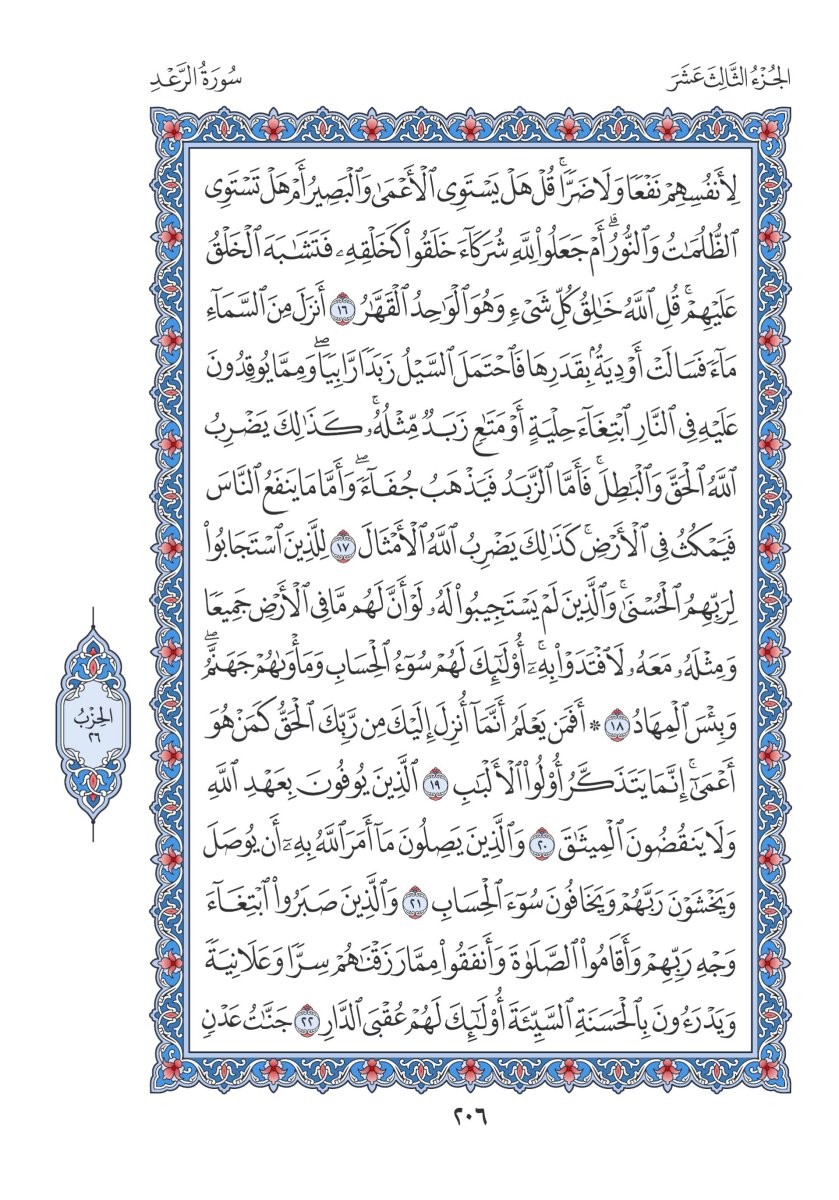 الجُزْءُ الثَّالِثَ عَشَرَ
سُورَةُ الرَّعْدِ
لِأَنفُسِهِمْ نَفْعًا وَلَا ضَرًّاۚ قُلْ هَلْ يَسْتَوِى ٱلْأَعْمَىٰ وَٱلْبَصِيرُ أَمْ هَلْ تَسْتَوِى
ٱلظُّلُمَـٰتُ وَٱلنُّورُۗ أَمْ جَعَلُوا۟ لِلَّهِ شُرَكَآءَ خَلَقُوا۟ كَخَلْقِهِۦ فَتَشَـٰبَهَ ٱلْخَلْقُ
عَلَيْهِمْۚ قُلِ ٱللَّهُ خَـٰلِقُ كُلِّ شَىْءٍ وَهُوَ ٱلْوَٰحِدُ ٱلْقَهَّـٰرُ ١٦ أَنزَلَ مِنَ ٱلسَّمَآءِ
مَآءً فَسَالَتْ أَوْدِيَةٌۢ بِقَدَرِهَا فَٱحْتَمَلَ ٱلسَّيْلُ زَبَدًا رَّابِيًاۖ وَمِمَّا يُوقِدُونَ
عَلَيْهِ فِى ٱلنَّارِ ٱبْتِغَآءَ حِلْيَةٍ أَوْ مَتَـٰعٍ زَبَدٌ مِّثْلُهُۥۚ كَذَٰلِكَ يَضْرِبُ
ٱللَّهُ ٱلْحَقَّ وَٱلْبَـٰطِلَۚ فَأَمَّا ٱلزَّبَدُ فَيَذْهَبُ جُفَآءًۖ وَأَمَّا مَا يَنفَعُ ٱلنَّاسَ
فَيَمْكُثُ فِى ٱلْأَرْضِۚ كَذَٰلِكَ يَضْرِبُ ٱللَّهُ ٱلْأَمْثَالَ ١٧ لِلَّذِينَ ٱسْتَجَابُوا۟
لِرَبِّهِمُ ٱلْحُسْنَىٰۚ وَٱلَّذِينَ لَمْ يَسْتَجِيبُوا۟ لَهُۥ لَوْ أَنَّ لَهُم مَّا فِى ٱلْأَرْضِ جَمِيعًا
وَمِثْلَهُۥ مَعَهُۥ لَٱفْتَدَوْا۟ بِهِۦٓۚ أُو۟لَـٰٓئِكَ لَهُمْ سُوٓءُ ٱلْحِسَابِ وَمَأْوَىٰهُمْ جَهَنَّمُۖ
وَبِئْسَ ٱلْمِهَادُ ١٨ * أَفَمَن يَعْلَمُ أَنَّمَآ أُنزِلَ إِلَيْكَ مِن رَّبِّكَ ٱلْحَقُّ كَمَنْ هُوَ
أَعْمَىٰٓۚ إِنَّمَا يَتَذَكَّرُ أُو۟لُوا۟ ٱلْأَلْبَـٰبِ ١٩ ٱلَّذِينَ يُوفُونَ بِعَهْدِ ٱللَّهِ
وَلَا يَنقُضُونَ ٱلْمِيثَـٰقَ ٢٠ وَٱلَّذِينَ يَصِلُونَ مَآ أَمَرَ ٱللَّهُ بِهِۦٓ أَن يُوصَلَ
وَيَخْشَوْنَ رَبَّهُمْ وَيَخَافُونَ سُوٓءَ ٱلْحِسَابِ ٢١ وَٱلَّذِينَ صَبَرُوا۟ ٱبْتِغَآءَ
وَجْهِ رَبِّهِمْ وَأَقَامُوا۟ ٱلصَّلَوٰةَ وَأَنفَقُوا۟ مِمَّا رَزَقْنَـٰهُمْ سِرًّا وَعَلَانِيَةً
وَيَدْرَءُونَ بِٱلْحَسَنَةِ ٱلسَّيِّئَةَ أُو۟لَـٰٓئِكَ لَهُمْ عُقْبَى ٱلدَّارِ ٢٢ جَنَّـٰتُ عَدْنٍ
الحِزْبُ
٢٦
٢٠٦